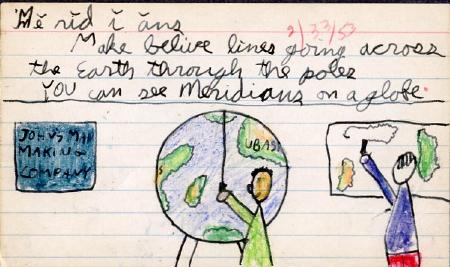 Mĕ rĭd ĭ ăns
2/33/53
Make belive lines going across
the Earth through the poles
YOU can see Meridians on a globe.
JOHNS MAP
MAKING
COMPANY